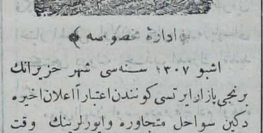 ﴿ ادارهٔ مخصوصه ﴾
اشبو ١٣٠٧ سنه‌سی شهر حزيرانك
برنجی بازار ايرتسی كونندن اعتباراً اعلان اخيره
دكين سواحل متجاوره واپورلرينك وقت